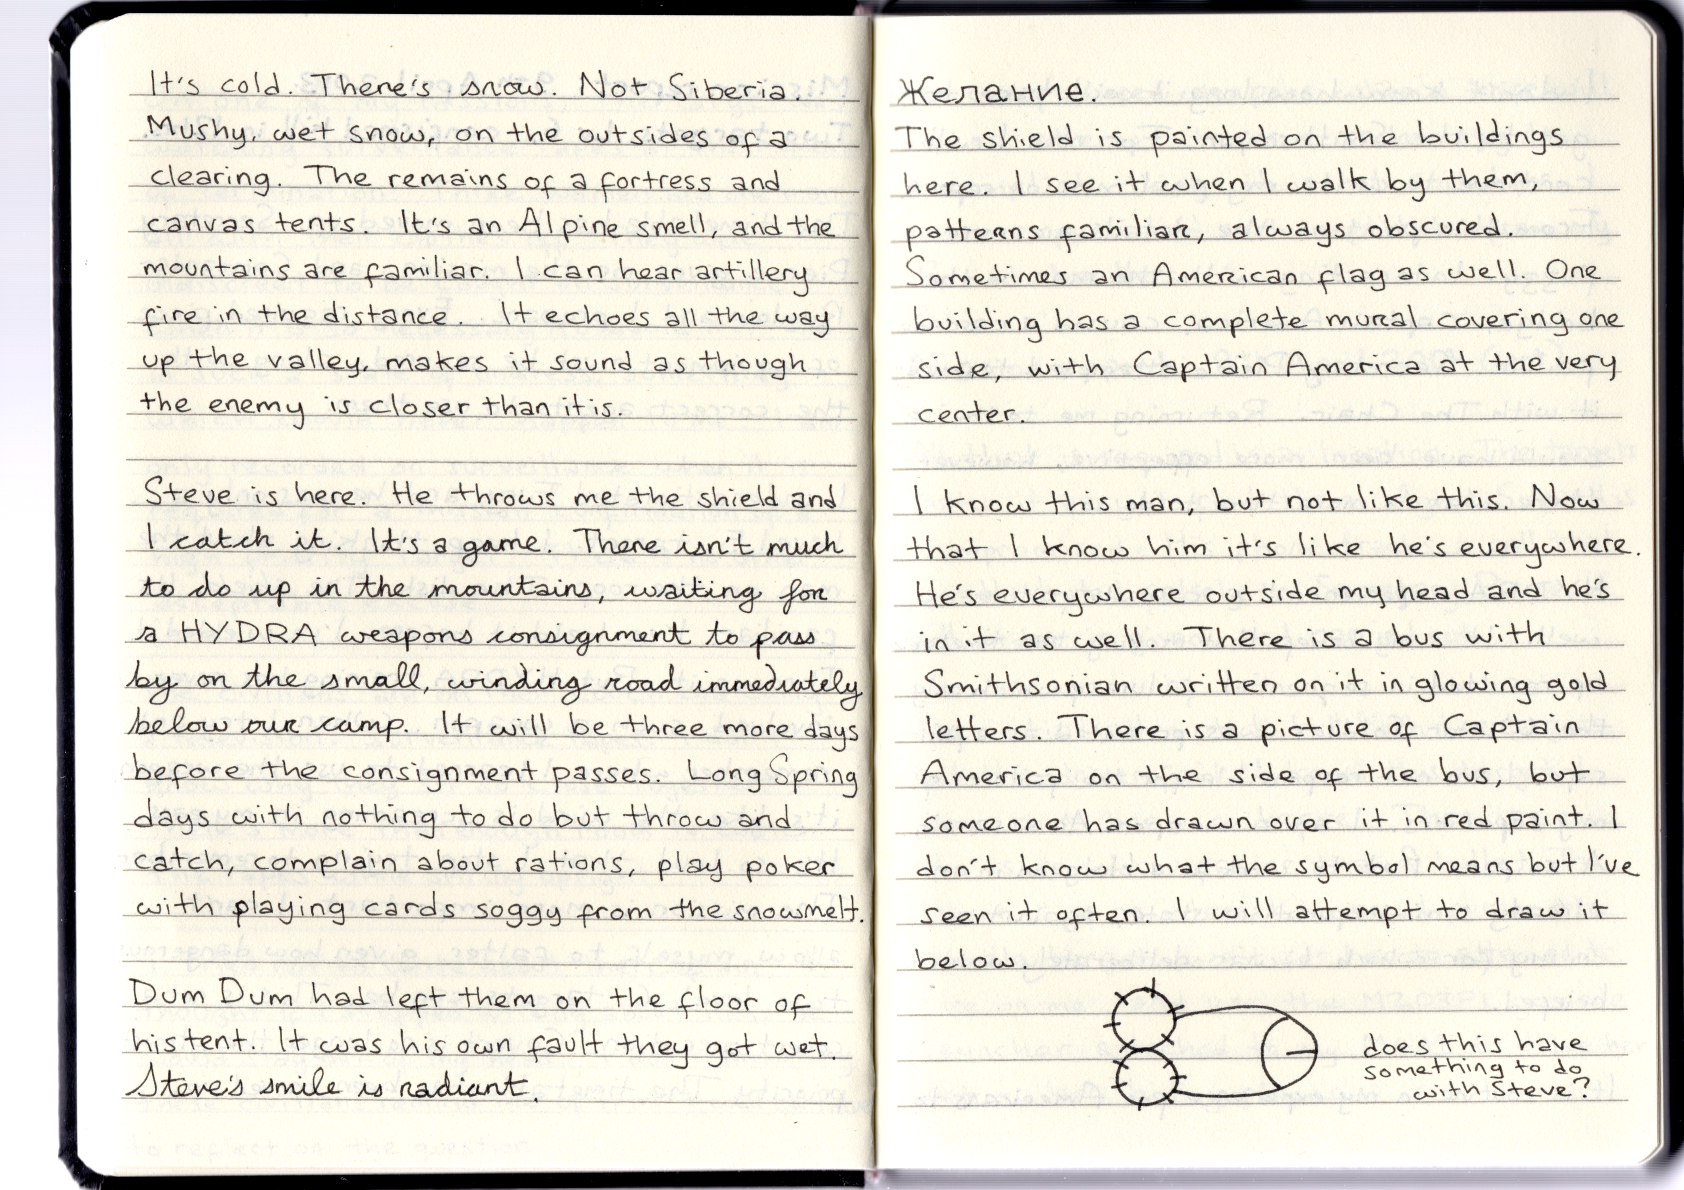 It's cold. There's snow. Not Siberia.
Mushy, wet snow, on the outsides of a
clearing. The remains of a fortress and
canvas tents. It's an Alpine smell, and the
mountains are familiar. I can hear artillery
fire in the distance. It echoes all the way
up the valley, makes it sound as though
the enemy is closer than it is.
Steve is here. He throws me the shield and
I catch it. It's a game. There isn't much
to do up in the mountains, waiting for
a HYDRA weapons consignment to pass
by on the small, winding road immediately
below our camp. It will be three more days
before the consignment passes. Long Spring
days with nothing to do but throw and
catch, complain about rations, play poker
with playing cards soggy from the snowmelt.
Dum Dum had left them on the floor of
his tent. It was his own fault they got wet.
Steve's smile is radiant.
Желание.
The shield is painted on the buildings
here. I see it when I walk by them,
patterns familiar, always obscured.
Sometimes an American flag as well. One
building has a complete mural covering one
side, with Captain America at the very
center.
I know this man, but not like this. Now
that I know him it's like he's everywhere.
He's everywhere outside my head and he's
in it as well. There is a bus with
Smithsonian written on it in glowing gold
letters. There is a picture of Captain
America on the side of the bus, but
someone has drawn over it in red paint. I
don't know what the symbol means but I've
seen it often. I will attempt to draw it
below.
does this have
something to do
with Steve?